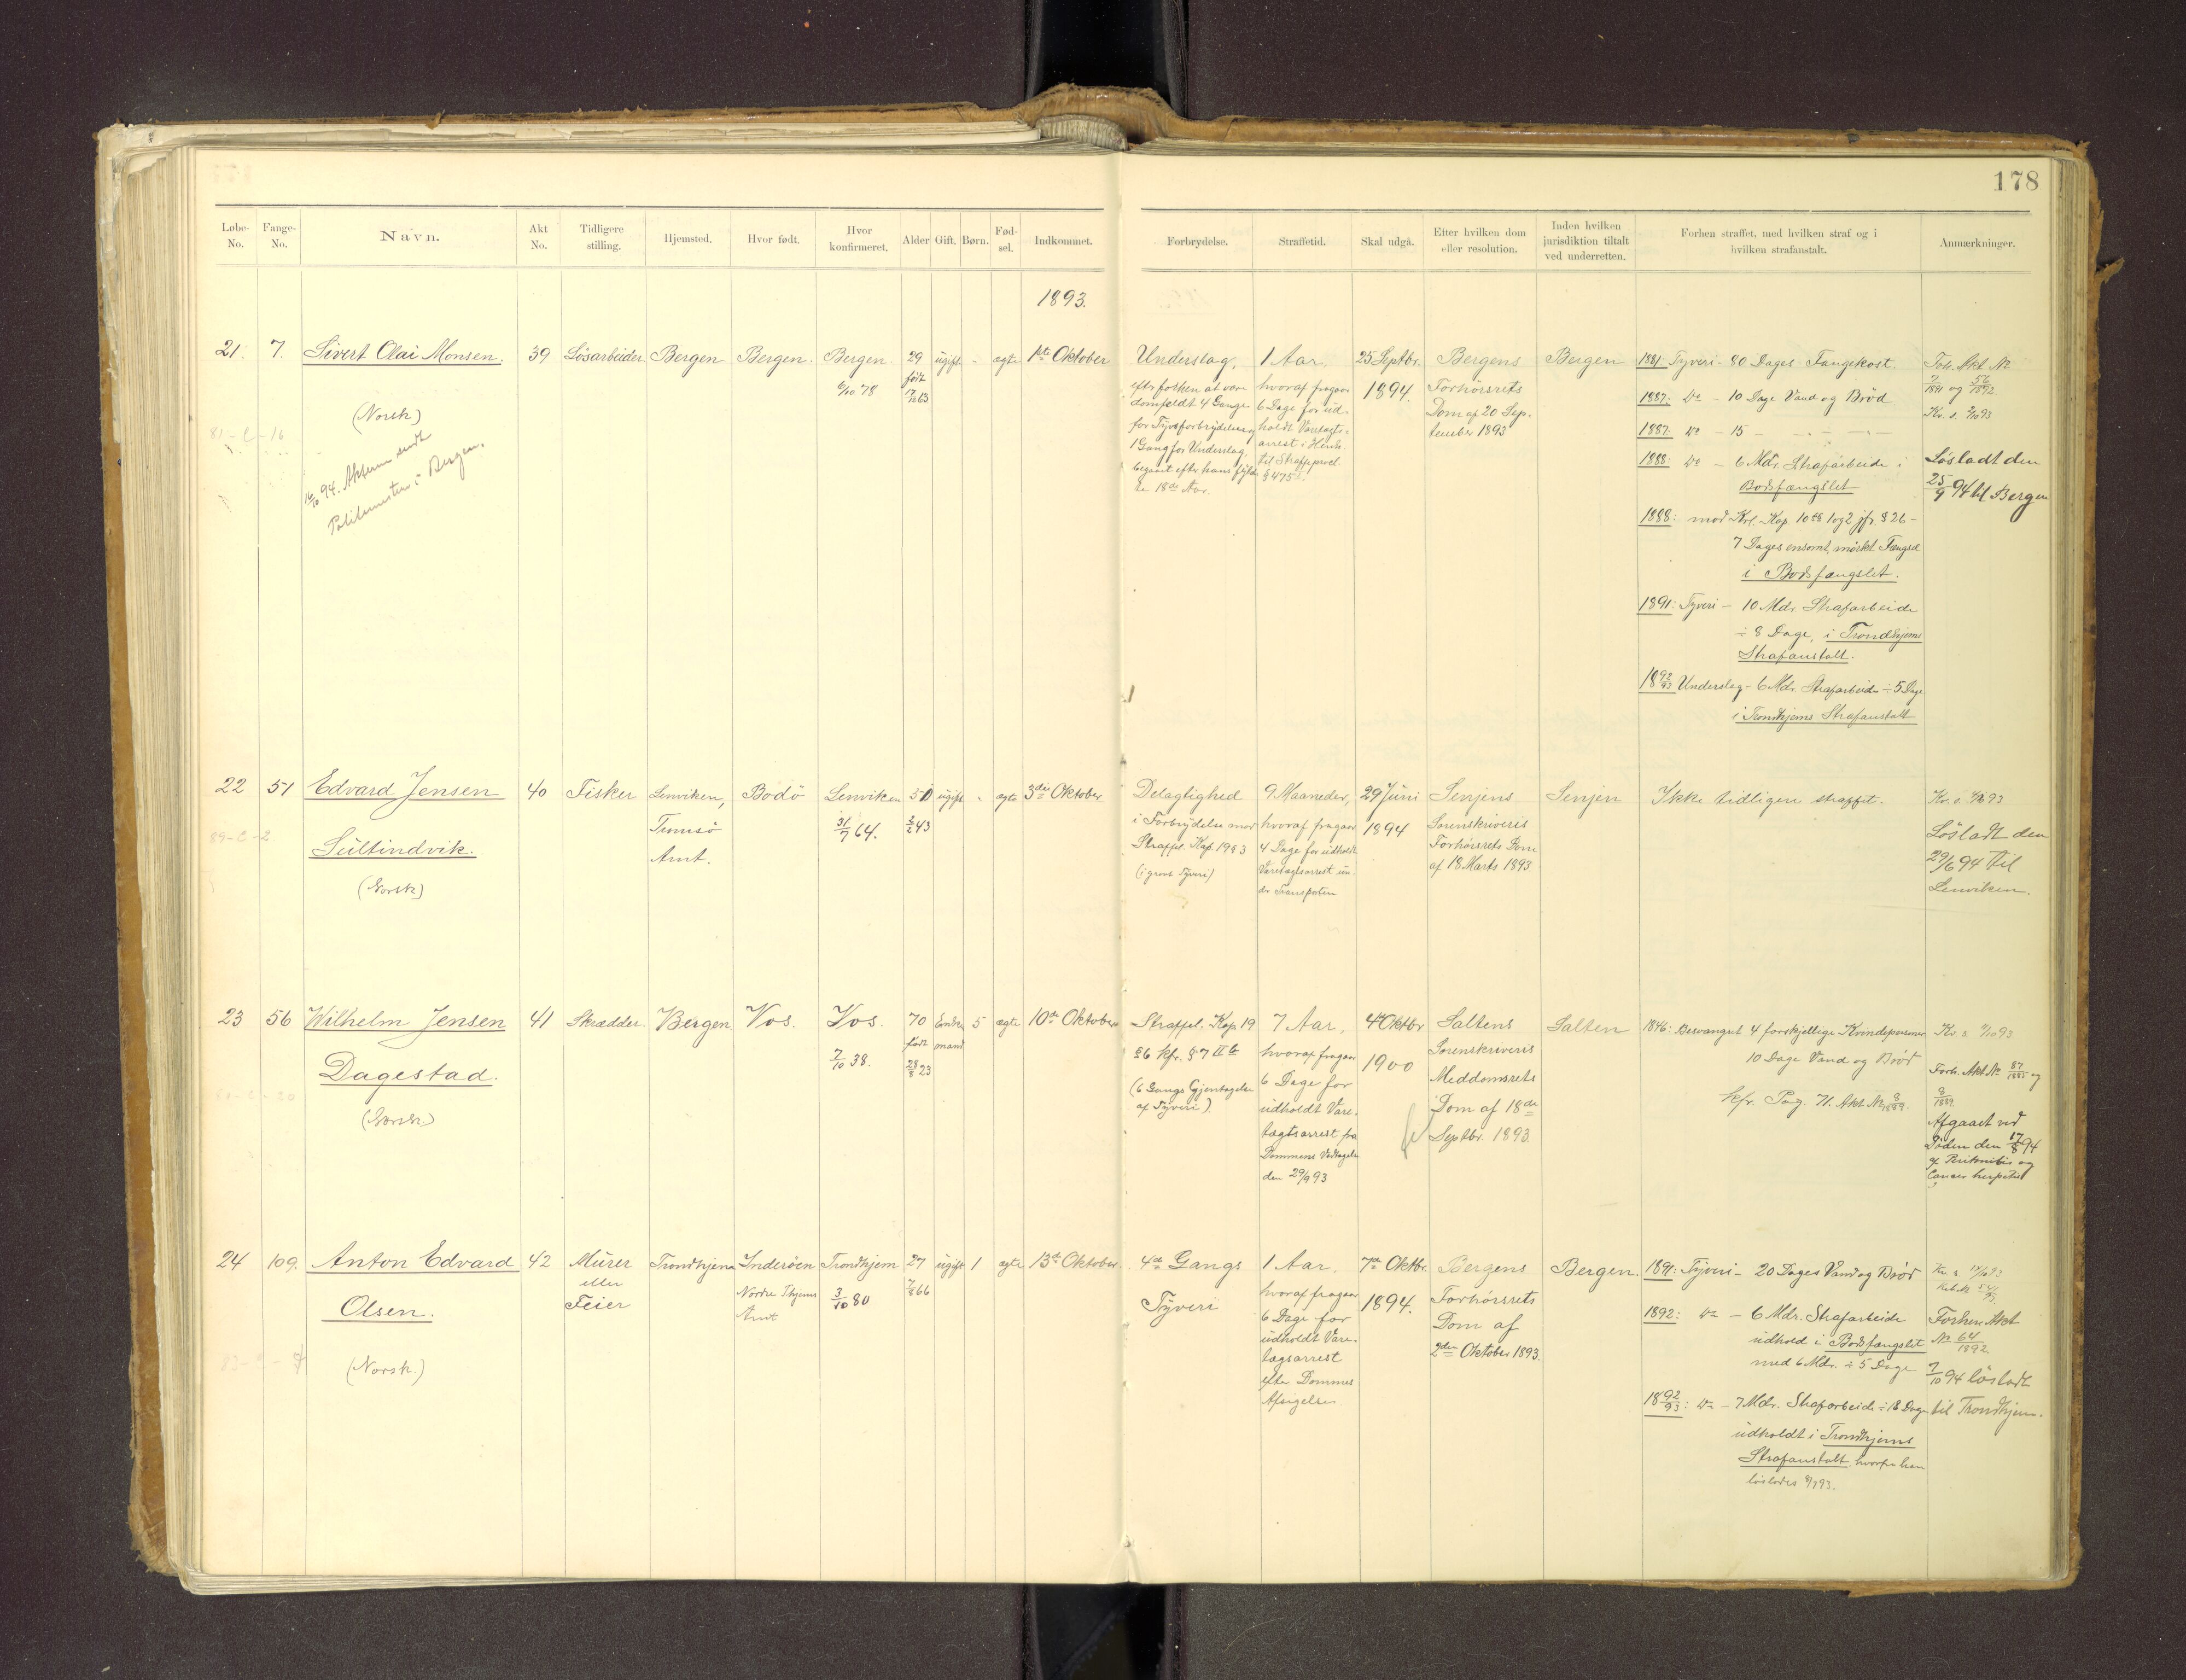 178
Løbe-No.
Fange-No.
Navn.
Akt No.
Tidligere stilling.
Hjemsted.
Hvor født.
Hvor konfirmeret.
Alder
Gift.
Børn.
Fødsel.
Indkommet.
Forbrydelse.
Straffetid.
Skal udgå.
Efter hvilken dom eller resolution.
Inden hvilken jurisdiktion tiltalt ved underretten.
Forhen straffet, med hvilken straf og i hvilken strafanstalt.
Anmærkninger.
1893.
21.
7.
Sivert Olai Monsen.
(Norsk)
81-C-16
16/10 94. Akterne sendt
Politimesteren i Bergen.
39
Løsarbeider
Bergen
Bergen.
Bergen
6/10 78
29
født
17/10 63
ugift
-
ægte
1ste Oktober
Underslag,
efter forhen at være
domfældt 4 Gange
for Tyvsforbrydelse og
1 Gang for Underslag,
begaaet efter hans fyld-
te 18de Aar.
1 Aar,
hvoraf fragaar
6 Dage for ud-
holdt Varetægts-
arrest i Henh.
til Straffeprocl.
§ 475.
25 Septbr.
1894.
Bergens
Forhørsrets
Dom af 20 Sep-
tember 1893
Bergen
1881: Tyveri - 80 Dages Fangekost.
1887: Do - 10 Dage Vand og Brød
1887: Do - 15 - - - -
1888: Do - 6 Mdr. Strafarbeide i
Bodsfængslet
1888: mod Krl. Kap. 10 §§ 1 og 2 jfr. § 26 -
7 Dages ensomt, mørkt Fængsel
i Bodsfængslet.
1891: Tyveri - 10 Mdr. Strafarbeide
÷ 8 Dage, i Trondhjems
Strafanstalt.
1892/93 Underslag - 6 Mdr. Strafarbeide ÷ 5 Dage
i Trondhjems Strafanstalt
Forh. Akt No
7/1891 og 56/1892
Kv. s. 2/10 93
Løsladt den
25/9 94 til Bergen
22
51
Edvard Jensen
Sultindvik.
(Norsk)
89-C-2
40
Fisker
Lenviken,
Tromsø
Amt.
Bodö
Lenviken
31/7 64.
50
2/2 43
ugift
-
ægte
3die Oktober
Delagtighed
i Forbrydelse mod
Straffel. Kap. 19 § 3
(i grovt Tyveri)
9 Maaneder,
hvoraf fragaar
4 Dage for udholdt
Varetægtsarrest un-
der Transporten
29 Juni
1894
Senjens
Sorenskriveris
Forhørsrets Dom
af 18 Marts 1893.
Senjen
Ikke tidligere straffet.
Løsladt den
29/6 94 til
Lenviken.
23
56
Wilhelm Jensen
Dagestad.
(Norsk)
41
Skrædder.
Bergen
Vos.
Vos.
7/10 38.
70
født
28/8 23
Enke-
mand
5
ægte
10de Oktober
Straffel. Kap. 19
§ 6 kfr. § 7
(6 Gangs Gjentagelse
af Tyveri)
7 Aar,
hvoraf fragaar
6 Dage for
udholdt Vare-
tægtsarrest fra
Dommens Vedtagelse
den 29/9 93
4 Oktbr
1900
Saltens
Sorenskriveris
Meddomsrets
Dom af 18de
Septbr. 1893.
Salten
1846: Besvangret 4 forskjellige Kvindepersoner
10 Dage Vand og Brød
kfr. Pag. 71. Akt No 8/1889.
Forh. Akt No 87/1885 og
8/1889.
Afgaaet ved
Døden den 17/8 94
af Peritonitis og
Cancer hepatis
24
109.
Anton Edvard
Olsen.
(Norsk.)
42
Murer
eller
Feier
Trondhjem
Inderøen
Nordre Thjems
Amt
Trondhjem
3/10 80
27
7/8 66
ugift
1
ægte
13de Oktober.
4de Gangs
Tyveri
1 Aar,
hvoraf fragaar
6 Dage for
udholdt Vare-
tægsarrest
efter Dommens
Afsigelse
7de Oktbr
1894.
Bergens
Forhørsrets
Dom af
2den Oktober 1893.
Bergen.
1891: Tyveri - 20 Dages Vand og Brød
1892: Do - 6 Mdr. Strafarbeide
udhold i Bodsfængslet
med 6 Mdr. ÷ 5 Dage
1892/93: Do - 7 Mdr. Strafarbeide ÷ 18 Dage
udholdt i Trondhjems
Strafanstalt, hvorfra han
løslodes 8/7 93.
Forhen Akt
No 64/1892
7/10 94 løsladt
til Trondhjem.